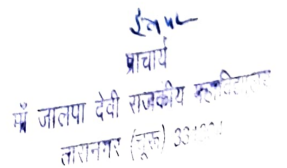 प्राचार्य
माँ जालपा देवी राजकीय महाविद्यालय
तारानगर (चूरू)